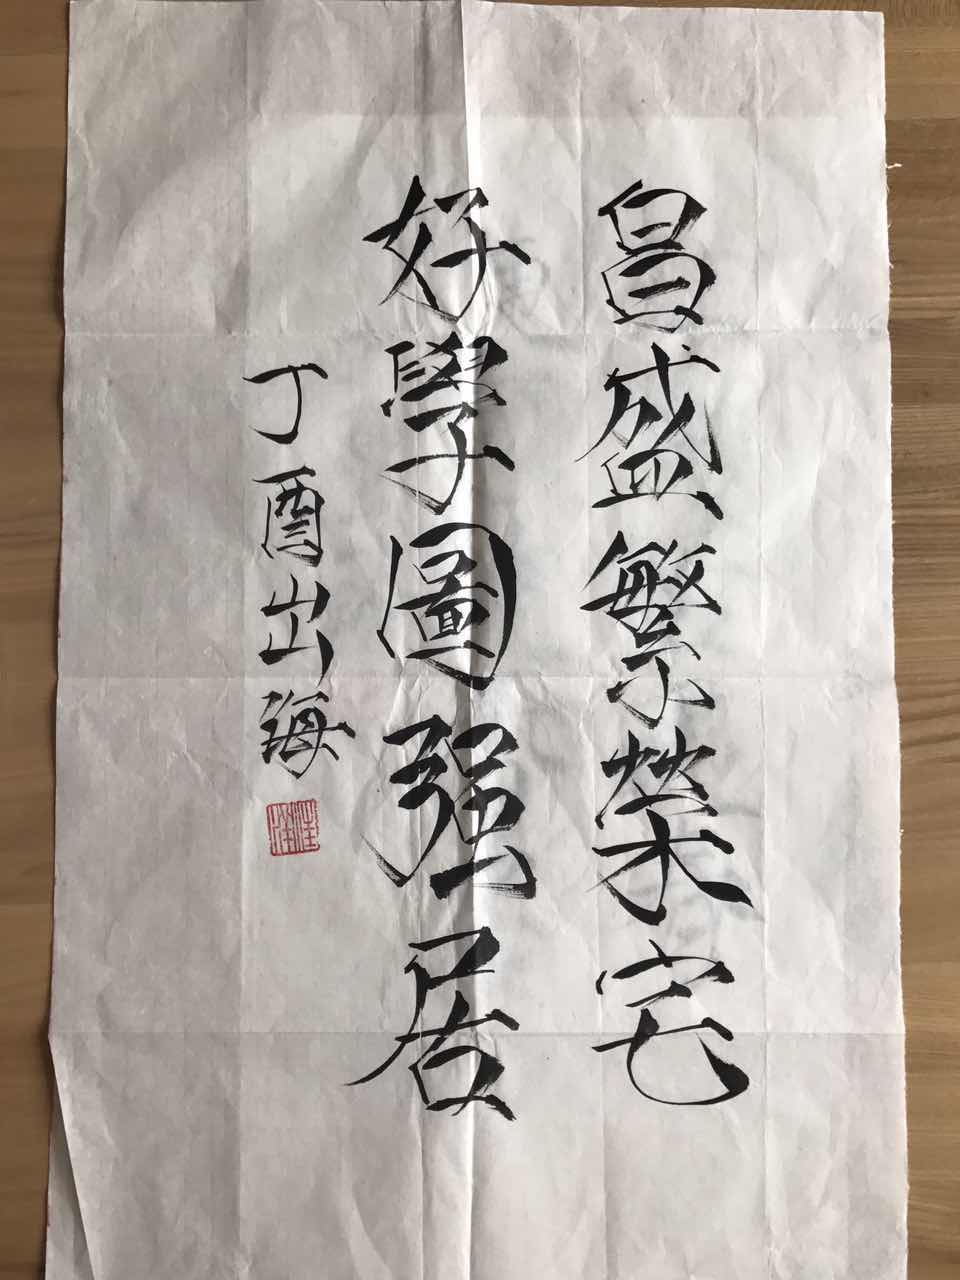 昌盛繁榮宅
好學圖强居
丁酉出海